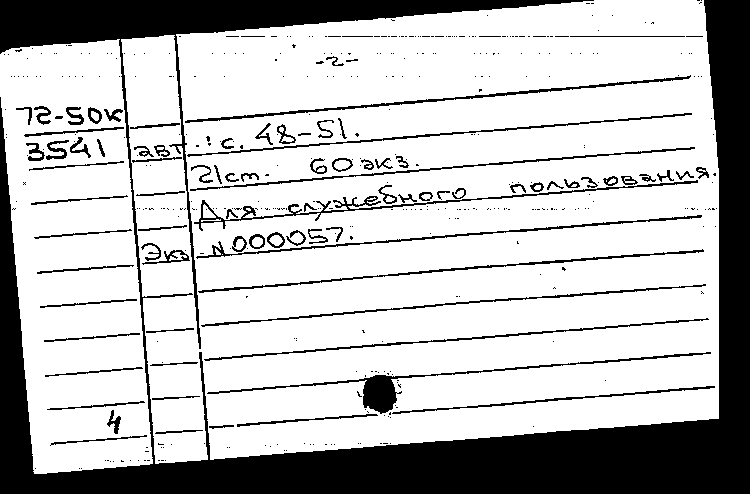 -2-
72-50к
3541 авт.: с. 48-51.
21ст. 60 экз.
Для служебного пользования.
Экз N000057.
4